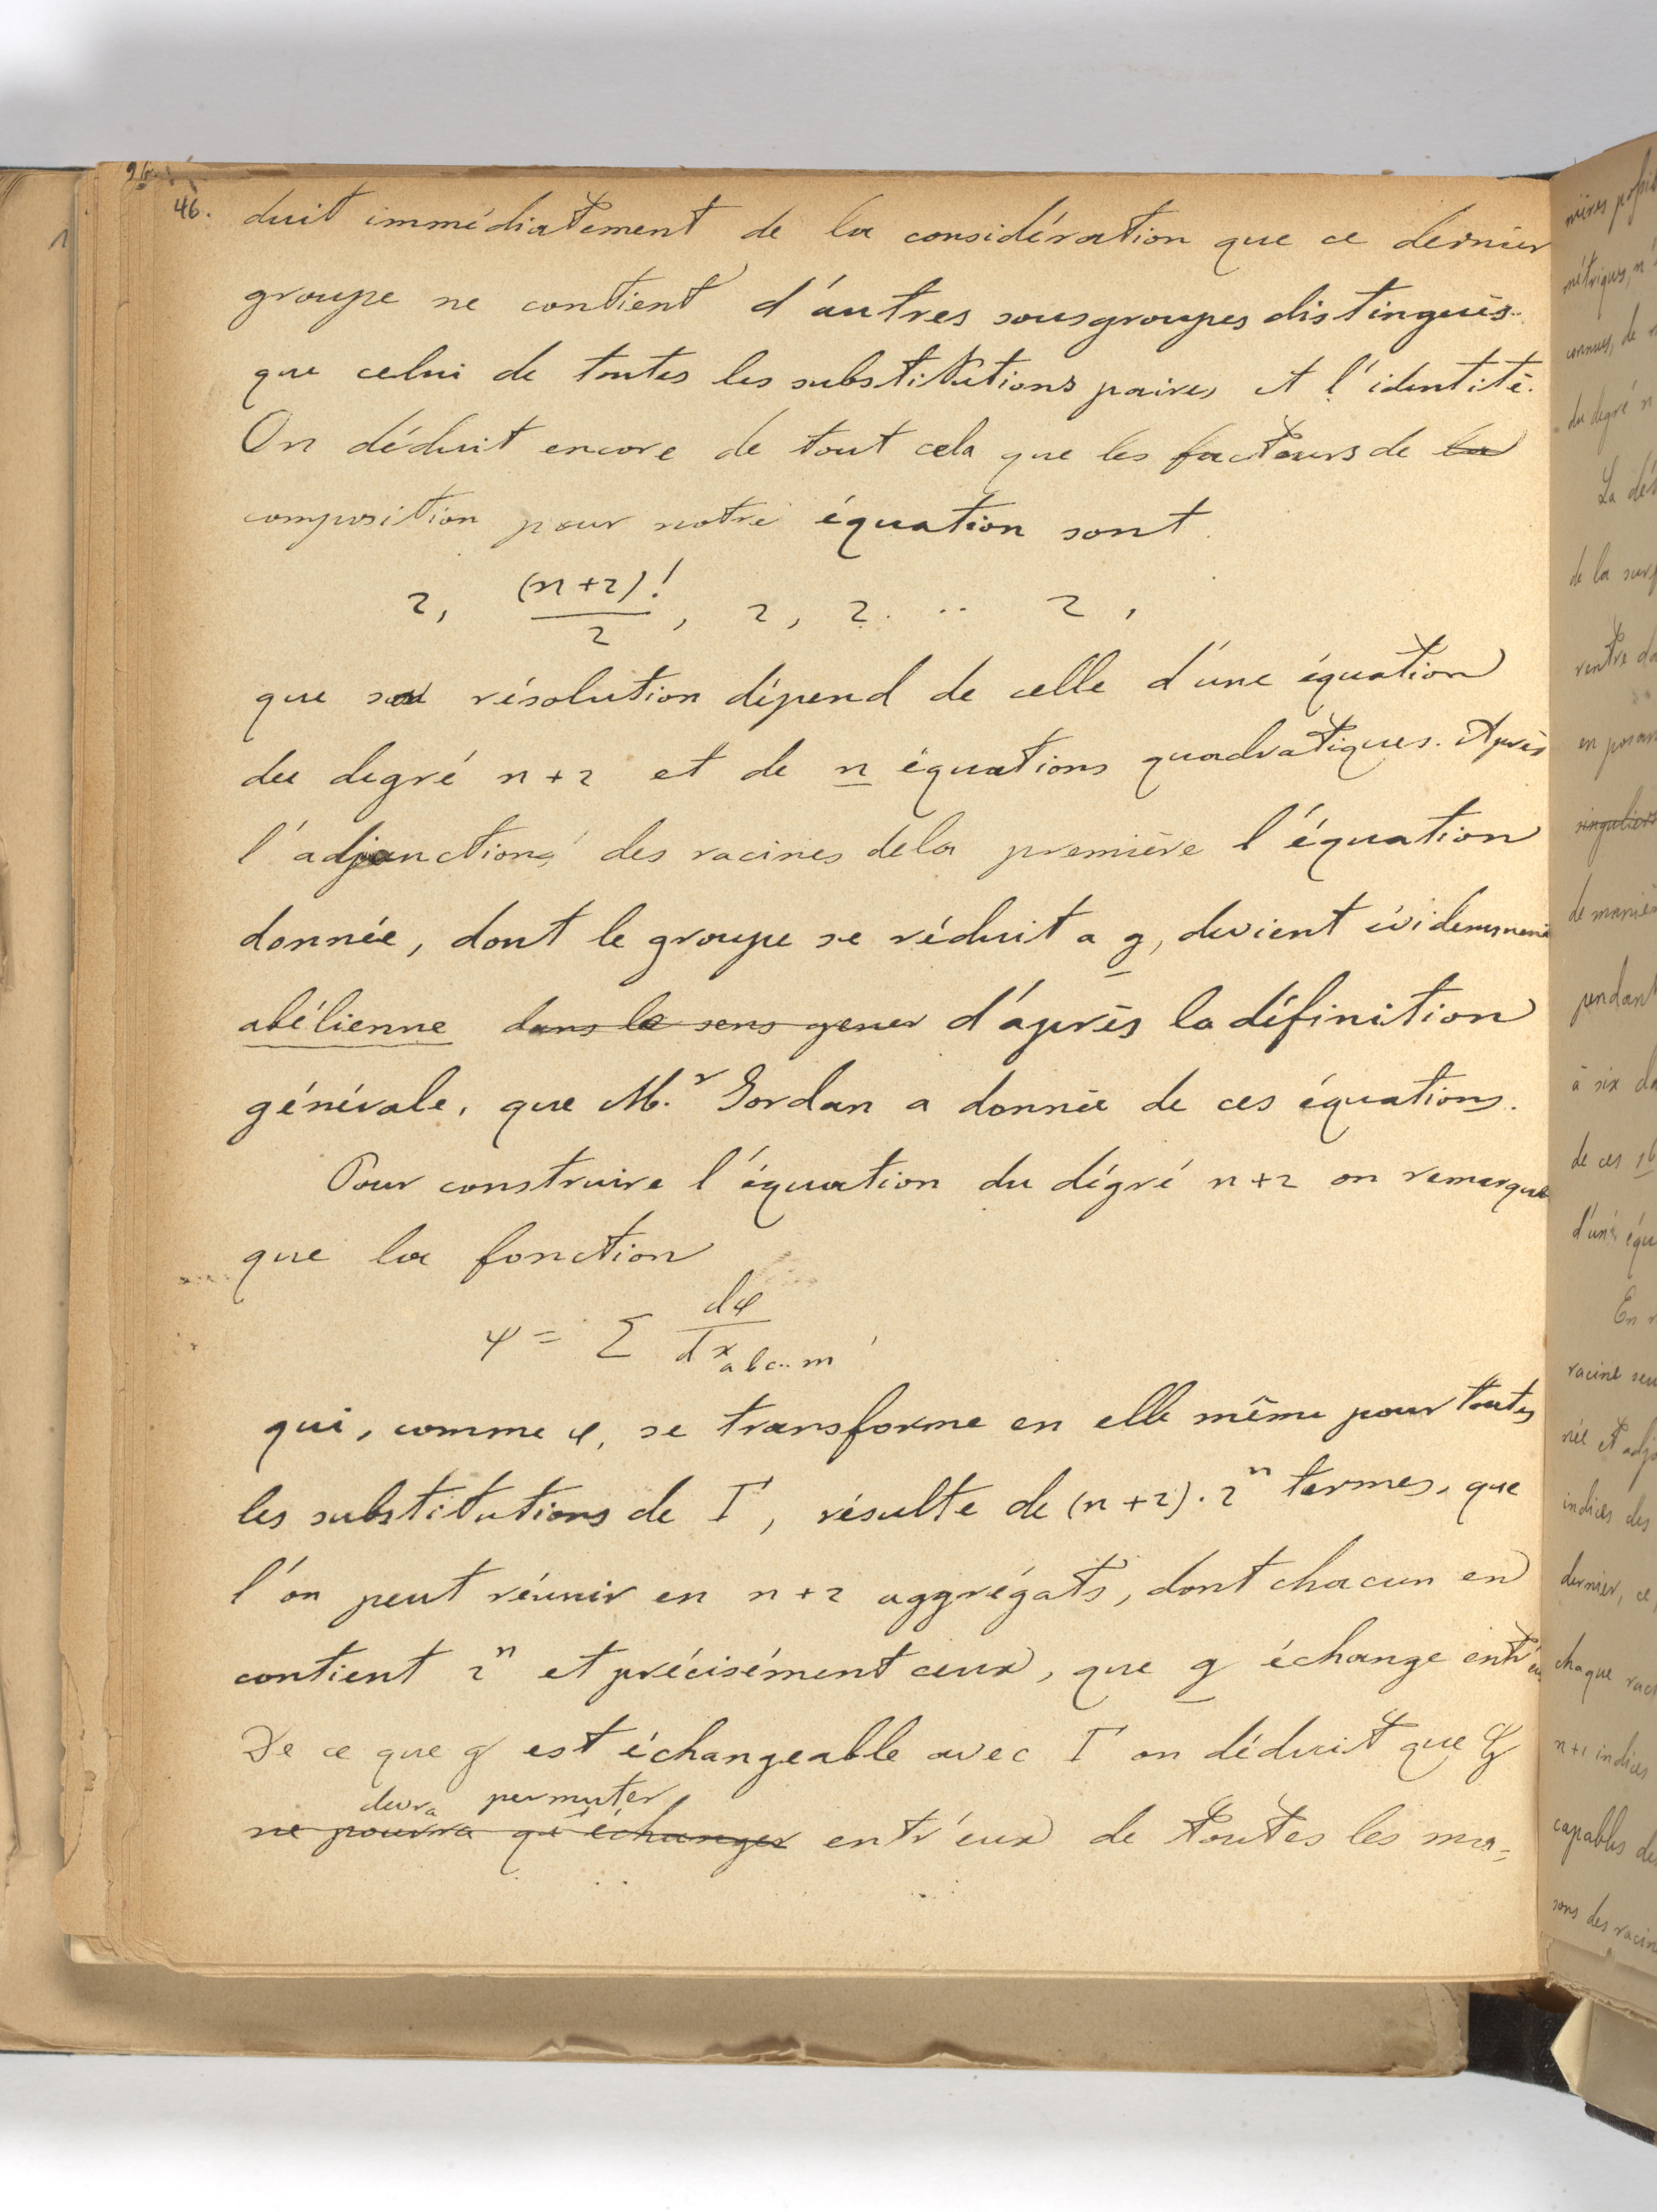 46.
duit immédiatement de la considération que ce dernier
groupe ne contient d'autres sousgroupes distingués
que celui de toutes les substitutions paires et l'identité.
On déduit encore de tout cela que les facteurs de la
composition pour notre équation sont
2, (n+2)!/2, 2, 2. .. 2,
que sa résolution dépend de celle d'une équation
du degré n+2 et de n équations quadratiques. Après
l'adjonction des racines de la première l'équation
donnée, dont le groupe se réduit a g, devient évidemment
abélienne dans le sens gener d'après la définition
générale, que M.r Jordan a donnée de ces équations.
Pour construire l'équation du dégré n+2 on remarque
que la fonction
ψ = Σ dφ/dx abc..m
qui, comme φ, se transforme en elle même pour toutes
les substitutions de Γ, résulte de (n+2).2ⁿ termes, que
l'on peut réunir en n+2 aggrégats, dont chacun en
contient 2ⁿ et précisément ceux, que g échange entr'eux
De ce que g est échangeable avec Γ on déduit que
devra permuter
ne pourra qu'échanger entr'eux de toutes les ma=
de la
en
singuliers
pendant
à six
de ces 16
racine
indices des
dernier, ce
chaque
n+1 indices
capables